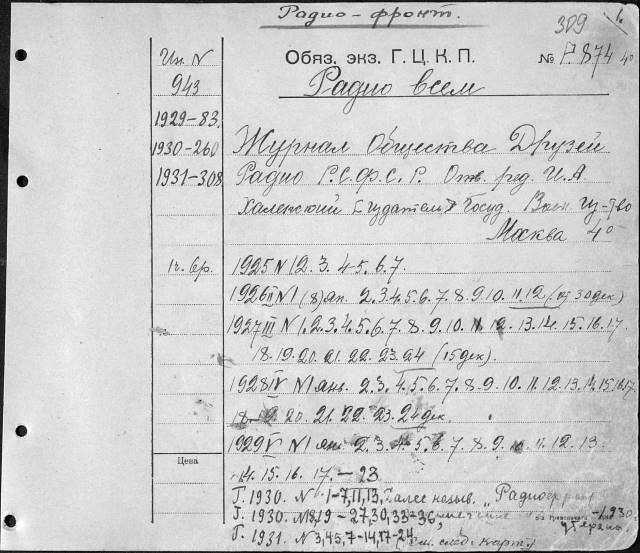 Радио-фронт.
329
Ин. N
943
Обяз. экз. Г. Ц. К. П.
№ Р.874 4°
Радио всем
1929-83.
1930-260
1931-308
Журнал Общества Друзей
Радио Р.С.Ф.С.Р. Отв. ред. И.А
Госуд. Воен.
Москва 4°
1925 N 1 2. 3. 4 5. 6. 7.
1926 II N 1 (8) ян. 2. 3. 4. 5. 6. 7. 8. 9. 10. 11. 12 (от 30 дек)
1927 III N 1. 2. 3. 4. 5. 6. 7. 8. 9. 10. 11. 12. 13. 14. 15. 16. 17.
18. 19. 20. 21. 22. 23. 24 (15 дек).
1928 IV N 1 янв. 2. 3. 4. 5. 6. 7. 8. 9. 10. 11. 12. 13. 14. 15. 16. 17
18. 19. 20. 21. 22. 23. 24 дек.
1929 V N 1 ян. 2. 3. 4. 5. 6. 7. 8. 9. 10. 11. 12. 13
Цена
14. 15. 16. 17. – 23
Г. 1930. N 1-7, 11, 13, Далее назыв. „Радиофронт
Г. 1930. N 18, 19 – 27, 30, 33-36,
Г. 1931. N 3, 45, 7-14, 17-24 (см. след. карт.)